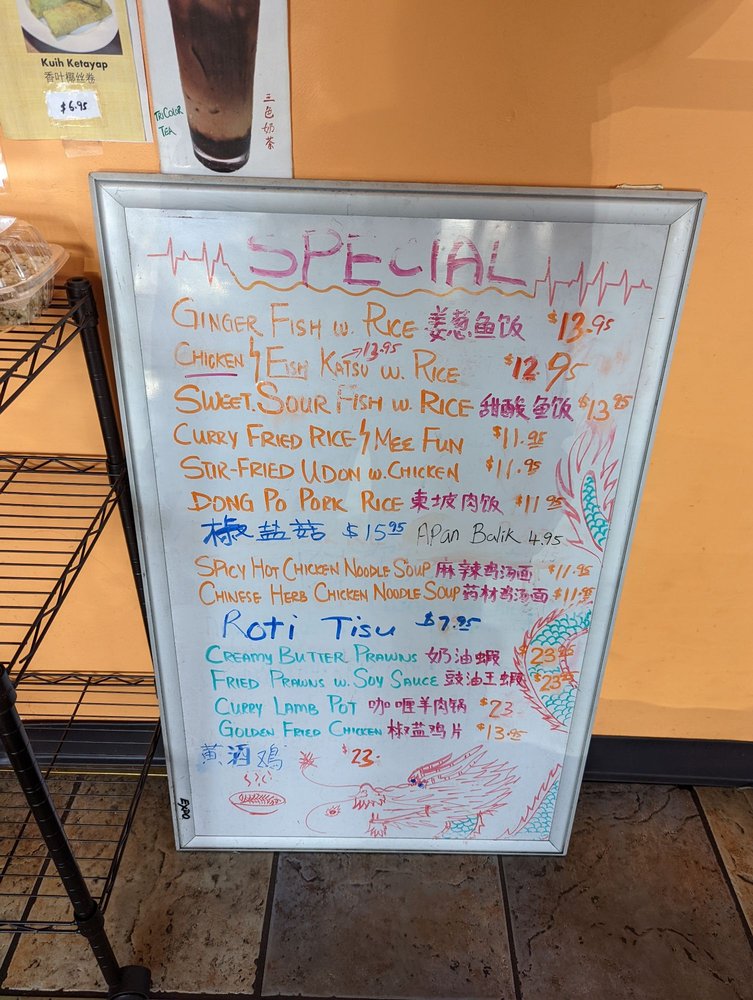 Kuih Ketayap
香叶椰丝卷
$6.95
TRICOLOR TEA
三色奶茶
SPECIAL
GINGER FISH W. RICE 姜葱鱼饭 $13.95
CHICKEN / FISH KATSU W. RICE $12.95
→13.95
SWEET.SOUR FISH W. RICE 甜酸鱼饭 $13.95
CURRY FRIED RICE / MEE FUN $11.95
STIR-FRIED UDON W. CHICKEN $11.95
DONG PO PORK RICE 東坡肉饭 $11.95
椒盐菇 $15.95 APAN Balik 4.95
SPICY HOT CHICKEN NOODLE SOUP 麻辣鸡汤面 $11.95
CHINESE HERB CHICKEN NOODLE SOUP 药材鸡汤面 $11.95
Roti Tisu $7.95
CREAMY BUTTER PRAWNS 奶油蝦 $23.95
FRIED PRAWNS W. SOY SAUCE 豉油王蝦 $23.95
CURRY LAMB POT 咖喱羊肉锅 $23
GOLDEN FRIED CHICKEN 椒盐鸡片 $13.95
黄酒鸡 $23.
EXPO